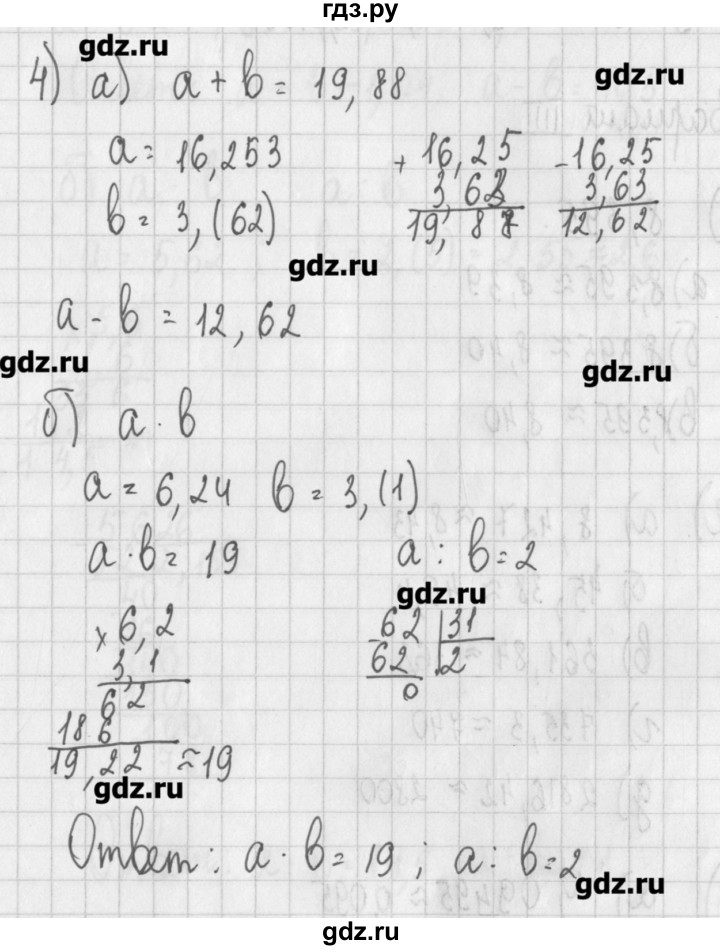 гдз.ру
gdz.ru
4) а) a + b = 19,88
gdz.ru
a = 16,253
b = 3,(62)
+ 16,25
3,63
19,88
- 16,25
3,63
12,62
gdz.ru
a - b = 12,62
gdz.ru
gdz.ru
б) a · b
a = 6,24 b = 3,(1)
a · b = 19 a : b = 2
gdz.ru
× 6,2
3,1
62
186
19,22 ≈ 19
62 31
62 2
0
gdz.ru
Ответ: a · b = 19; a : b = 2
gdz.ru
гдз.ру